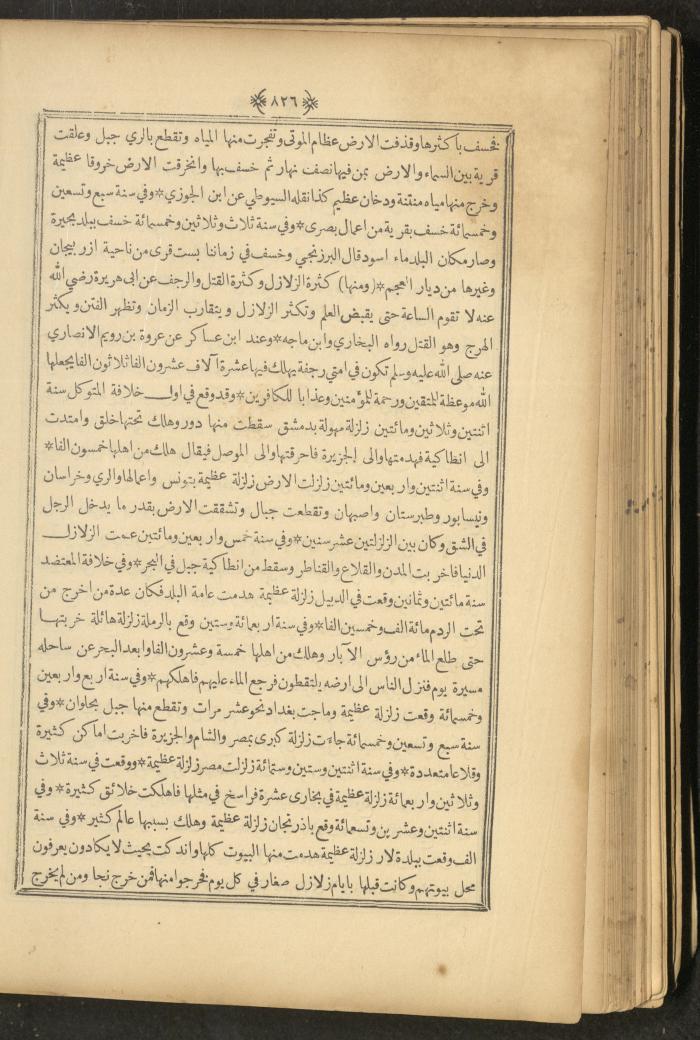 ٨٢٦
فخسف بأكثرها وقذفت الارض عظام الموتى وتفجرت منها المياه وتقطع بالري جبل وعلقت
قرية بين السماء والارض بمن فيها نصف نهار ثم خسف بها وانخرقت الارض خروقا عظيمة
وخرج منها مياه منتنة ودخان عظيم كذا نقله السيوطي عن ابن الجوزي * وفي سنة سبع وتسعين
وخمسمائة خسف بقرية من اعمال بصرى * وفي سنة ثلاث وثلاثين وخمسمائة خسف ببلد بحيرة
وصار مكان البلد ماء اسود قال البرزنجي وخسف في زماننا بست قرى من ناحية ازربيجان
وغيرها من ديار العجم * (ومنها) كثرة الزلازل وكثرة القتل والرجف عن ابى هريرة رضي الله
عنه لا تقوم الساعة حتى يقبض العلم وتكثر الزلازل ويتقارب الزمان وتظهر الفتن ويكثر
الهرج وهو القتل رواه البخاري وابن ماجه * وعند ابن عساكر عن عروة بن رويم الانصاري
عنه صلى الله عليه وسلم تكون في امتي رجفة يهلك فيها عشرة آلاف عشرون الفا ثلاثون الفا يجعلها
الله موعظة للمتقين ورحمة للمؤمنين وعذابا للكافرين * وقد وقع في اول خلافة المتوكل سنة
اثنتين وثلاثين ومائتين زلزلة مهولة بدمشق سقطت منها دور وهلك تحتها خلق وامتدت
الى انطاكية فهدمتها والى الجزيرة فاحرقتها والى الموصل فيقال هلك من اهلها خمسون الفا *
وفي سنة اثنتين واربعين ومائتين زلزلت الارض زلزلة عظيمة بتونس واعمالها والري وخراسان
ونيسابور وطبرستان واصبهان وتقطعت جبال وتشققت الارض بقدر ما يدخل الرجل
في الشق وكان بين الزلزلتين عشر سنين * وفي سنة خمس واربعين ومائتين عمت الزلازل
الدنيا فاخربت المدن والقلاع والقناطر وسقط من انطاكية جبل في البحر * وفي خلافة المعتضد
سنة مائتين وثمانين وقعت في الدبيل زلزلة عظيمة هدمت عامة البلد فكان عدة من اخرج من
تحت الردم مائة الف وخمسين الفا * وفي سنة اربعمائة وستين وقع بالرملة زلزلة هائلة خربتها
حتى طلع الماء من رؤس الآبار وهلك من اهلها خمسة وعشرون الفا وابعد البحر عن ساحله
مسيرة يوم فنزل الناس الى ارضه يلتقطون فرجع الماء عليهم فاهلكهم * وفي سنة اربع واربعين
وخمسمائة وقعت زلزلة عظيمة وماجت بغداد نحو عشر مرات وتقطع منها جبل بحلوان * وفي
سنة سبع وتسعين وخمسمائة جاءت زلزلة كبرى بمصر والشام والجزيرة فاخربت اماكن كثيرة
وقلاعا متعددة * وفي سنة اثنتين وستين وستمائة زلزلت مصر زلزلة عظيمة * ووقعت في سنة ثلاث
وثلاثين واربعمائة زلزلة عظيمة في بخارى عشرة فراسخ في مثلها فاهلكت خلائق كثيرة * وفي
سنة اثنتين وعشرين وتسعمائة وقع باذرنجان زلزلة عظيمة وهلك بسببها عالم كثير * وفي سنة
الف وقعت ببلدة لار زلزلة عظيمة هدمت منها البيوت كلها واندكت بحيث لا يكادون يعرفون
محل بيوتهم وكانت قبلها بايام زلازل صغار في كل يوم فخرجوا منها فمن خرج نجا ومن لم يخرج